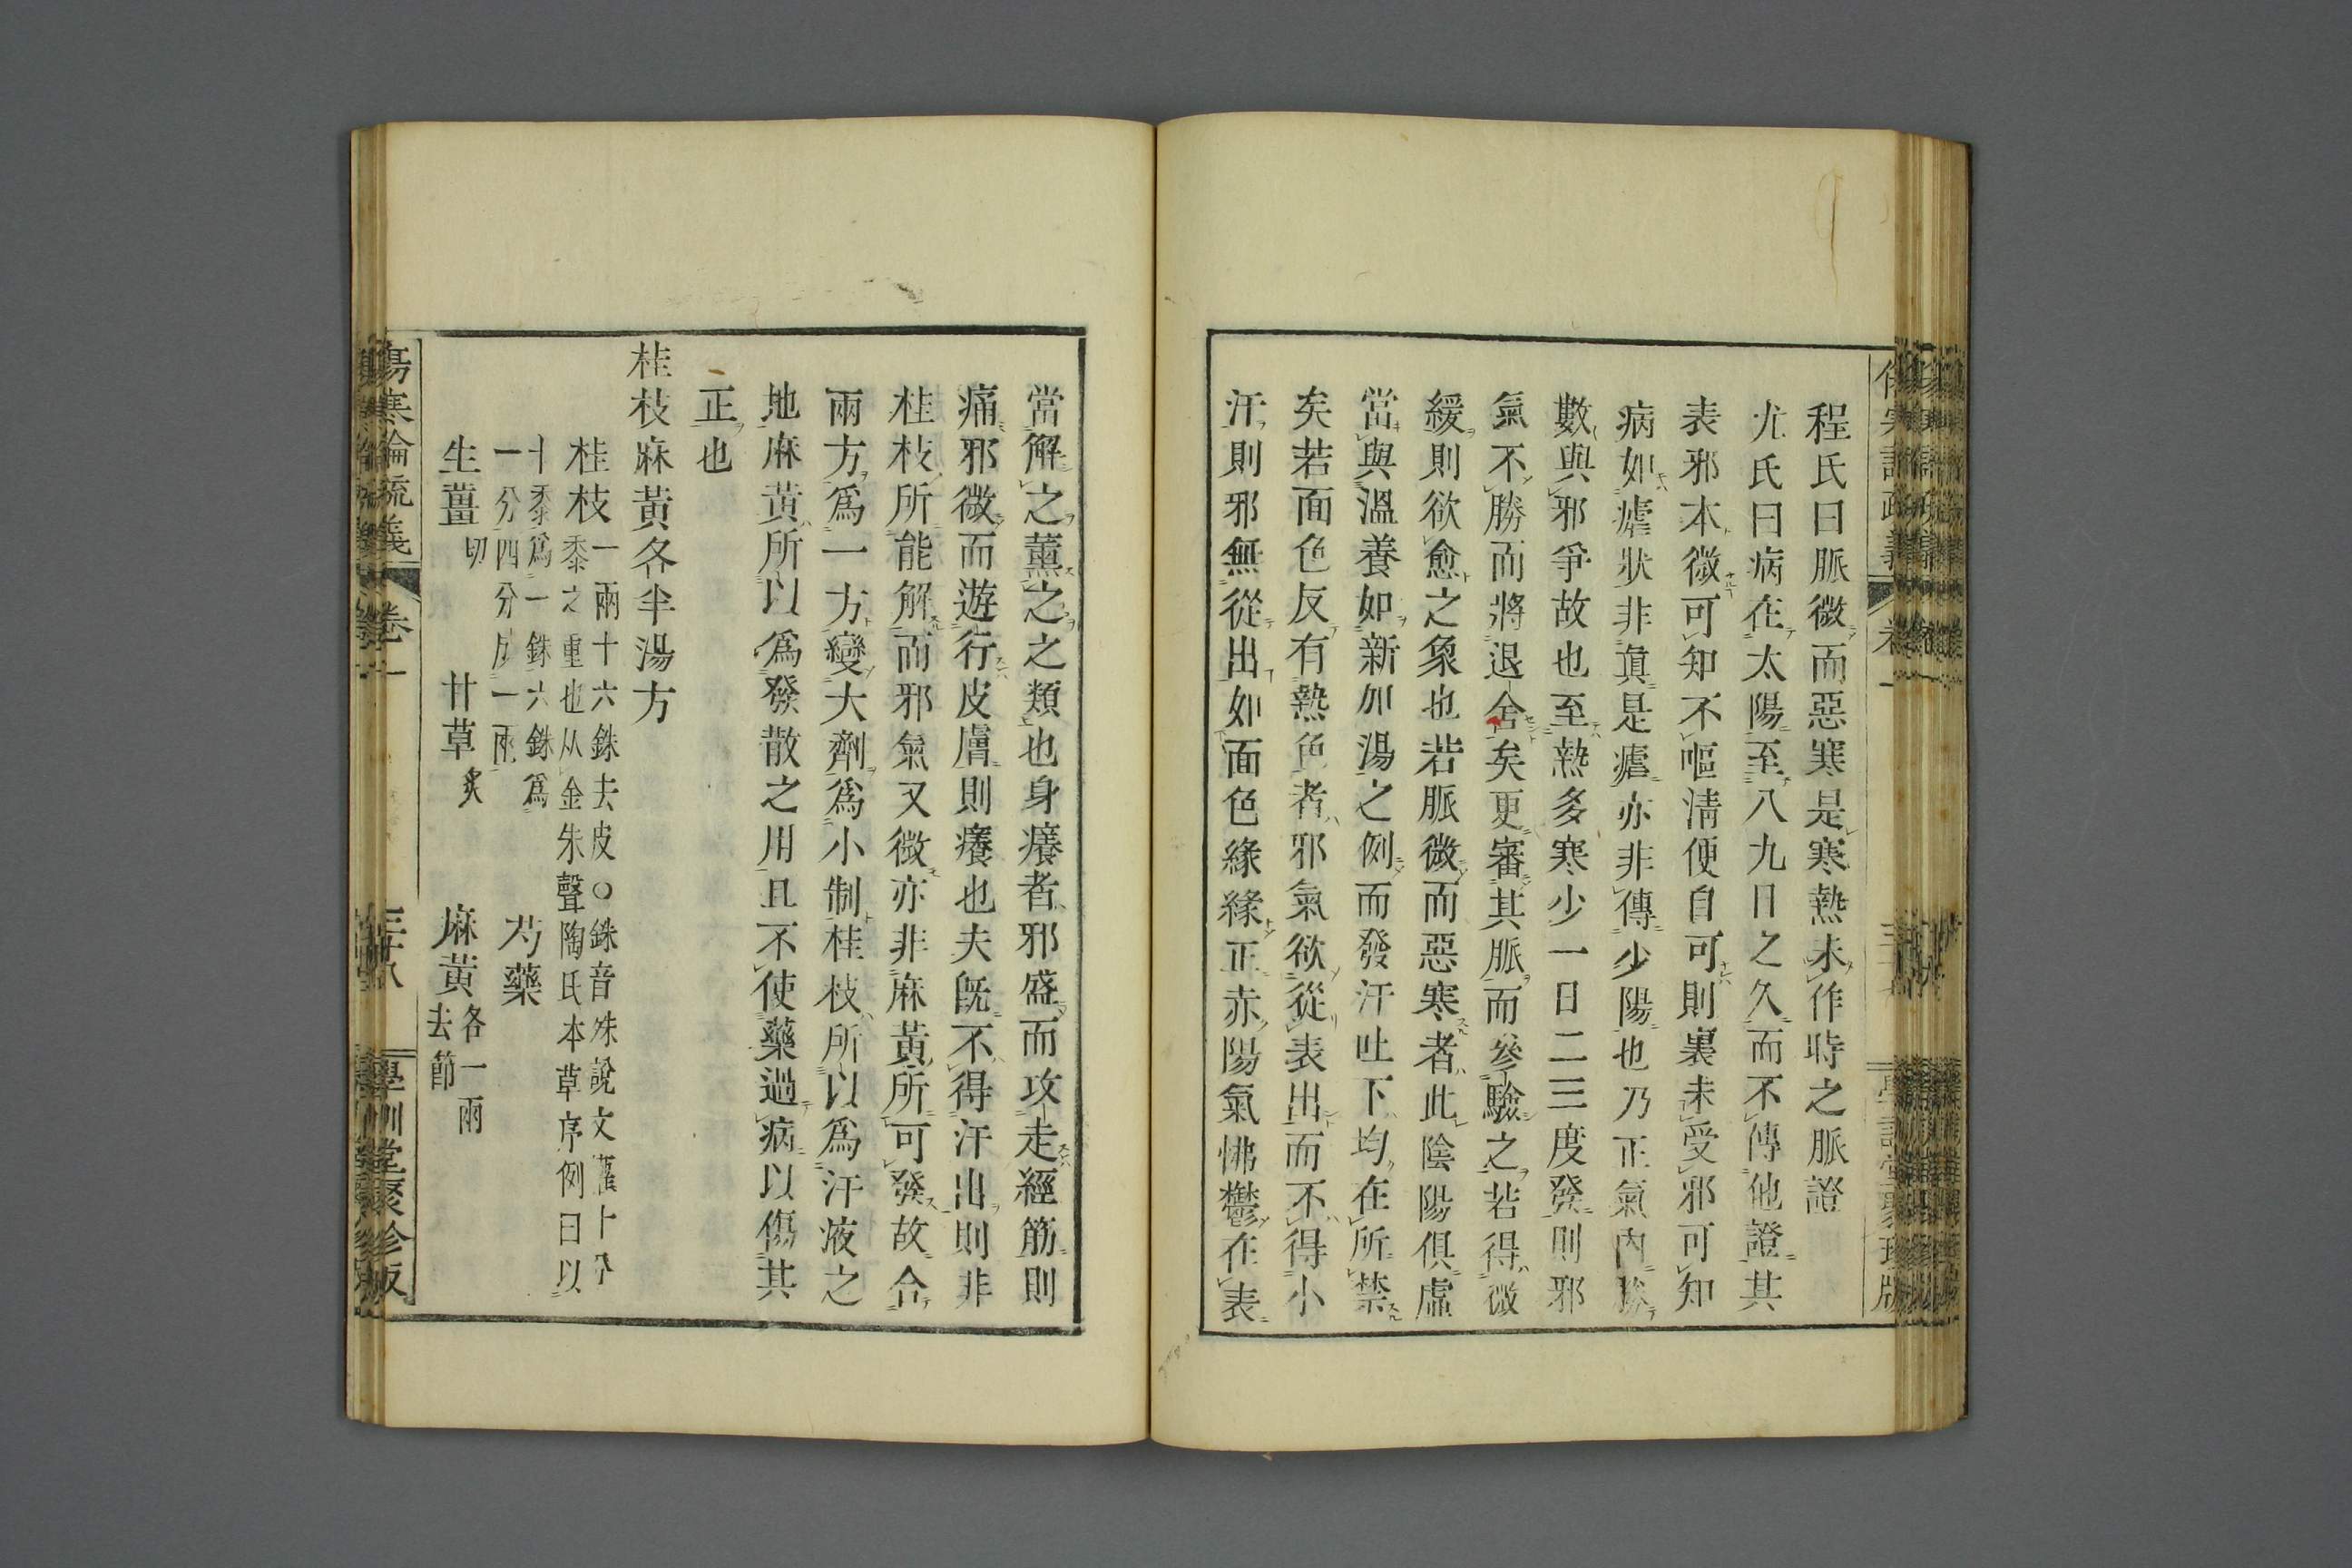 程氏曰脈微而惡寒是寒熱未作時之脈證
尤氏曰病在太陽至八九日之久而不傳他證其
表邪本微可知不嘔淸便自可則裏未受邪可知
病如瘧狀非眞是瘧亦非傳少陽也乃正氣內勝
數與邪爭故也至熱多寒少一日二三度發則邪
氣不勝而將退舍矣更審其脈而參驗之若得微
緩則欲愈之象也若脈微而惡寒者此陰陽俱虛
當與溫養如新加湯之例而發汗吐下均在所禁
矣若面色反有熱色者邪氣欲從表出而不得小
汗則邪無從出如面色緣緣正赤陽氣怫鬱在表
當解之薰之之類也身癢者邪盛而攻走經筋則
痛邪微而遊行皮膚則癢也夫旣不得汗出則非
桂枝所能解而邪氣又微亦非麻黃所可發故合
兩方爲一方變大劑爲小制桂枝所以爲汗液之
地麻黃所以爲發散之用且不使藥過病以傷其
正也
桂枝麻黃各半湯方
桂枝一兩十六銖去皮○銖音殊說文權十分
黍之重也从金朱聲陶氏本草序例曰以
十黍爲一銖六銖爲
一分四分成一兩
芍藥
生薑切 甘草炙 麻黃各一兩去節
傷寒論疏義 卷一 三十八 學訓堂聚珍版